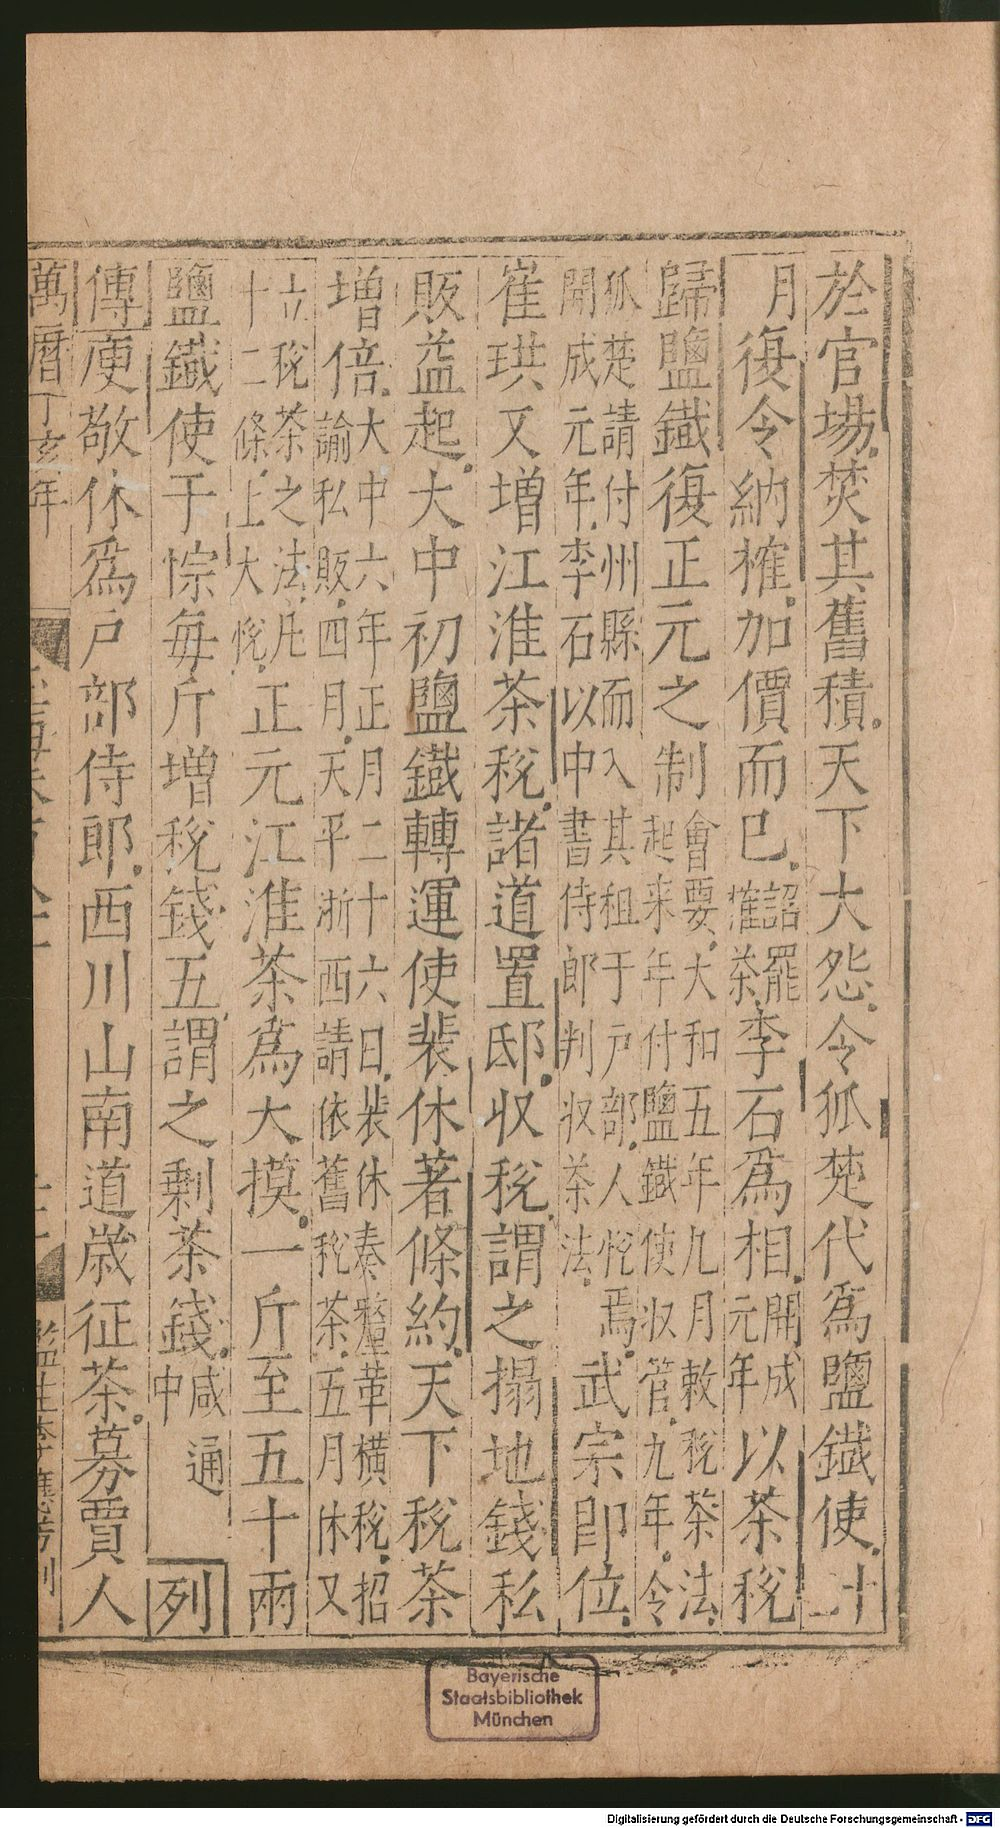 於官場焚其舊積天下大怨令狐楚代爲鹽鐵使十二
月復令納搉加價而已詔罷搉茶李石爲相開成元年以茶稅
歸鹽鐵復正元之制會要大和五年九月敕稅茶法起来年付鹽鐵使収管九年令
狐楚請付州縣而入其租于戸部人恱焉開成元年李石以中書侍郎判収茶法武宗即位
崔珙又增江淮茶稅諸道置邸収稅謂之搨地錢私
販益起大中初鹽鐵轉運使裴休著條約天下稅茶
增倍大中六年正月二十六日裴休奏釐革橫稅招諭私販四月天平浙西請依舊稅茶五月休又
立稅茶之法凡十二條上大恱正元江淮茶爲大摸一斤至五十兩
鹽鐵使于悰每斤增稅錢五謂之剩茶錢咸通中列
傳庾敬休爲戸部侍郎西川山南道歲征茶募賈人
萬曆丁亥年
Bayerische
Staatsbibliothek
München
Digitalisierung gefördert durch die Deutsche Forschungsgemeinschaft - DFG